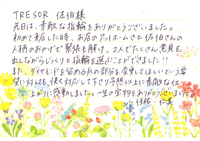 TRESOR 佐伯様
先日は、素敵な指輪をありがとうございました。
初めて来店した時、お店のアットホームさと佐伯さんの
人柄のおかげで緊張も解け、2人でたくさん意見を
出しながらじっくりと指輪を選ぶことができました!!
また、ダイヤモンドを留める人の部分を卒業してほしいという要
望に対しても、快く対応して下さり予想以上に素敵な仕
上がりに感動しました。一生の宝物をありがとうございました。